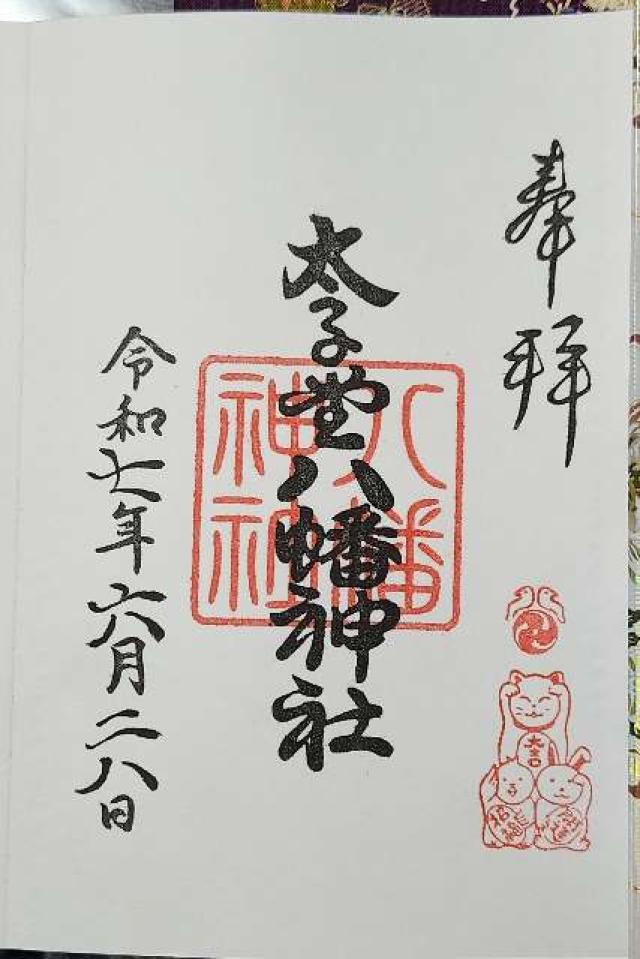 奉拝
太子堂八幡神社
八幡
神社
大吉
令和七年六月二八日